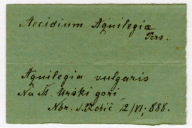 Aecidium Aquilegiae
Pers.
Aquilegia vulgaris
Na M. Urški gori
Nbr. S. Robič 12/VI, 888.